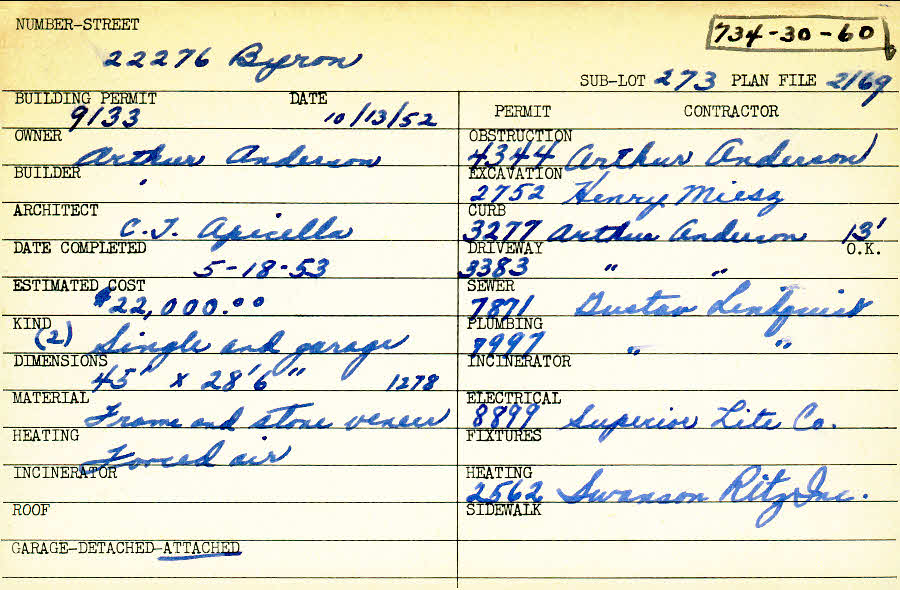 NUMBER-STREET
734-30-60
22276 Byron
SUB-LOT 273 PLAN FILE 2169
BUILDING PERMIT DATE
9133 10/13/52
PERMIT CONTRACTOR
OWNER
Arthur Anderson
OBSTRUCTION
4344 Arthur Anderson
BUILDER
"
EXCAVATION
2752 Henry Miesz
ARCHITECT
C.T. Apicella
CURB
3277 Arthur Anderson 13'
DATE COMPLETED
5-18-53
DRIVEWAY O.K.
3383 " "
ESTIMATED COST
$22,000.00
SEWER
7871 Gustav Lindquist
KIND
(2) Single and garage
PLUMBING
7997 " "
DIMENSIONS
45' x 28'6" 1278
INCINERATOR
MATERIAL
Frame and stone veneer
ELECTRICAL
8899 Superior Lite Co.
HEATING
Forced air
FIXTURES
INCINERATOR
HEATING
2562 Swanson Ritz Inc.
ROOF
SIDEWALK
GARAGE-DETACHED-ATTACHED